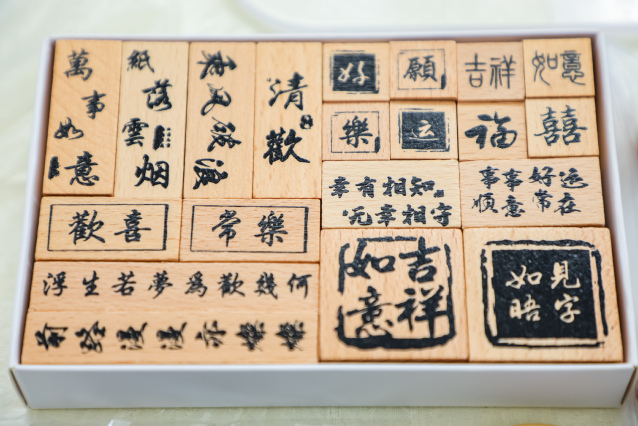 萬事如意
紙落雲烟
清歡
好
願
吉祥
如意
樂
运
福
囍
幸有相知
无幸相守
事事好运
顺意常在
歡喜
常樂
浮生若夢爲歡幾何
吉祥
如意
見字
如晤